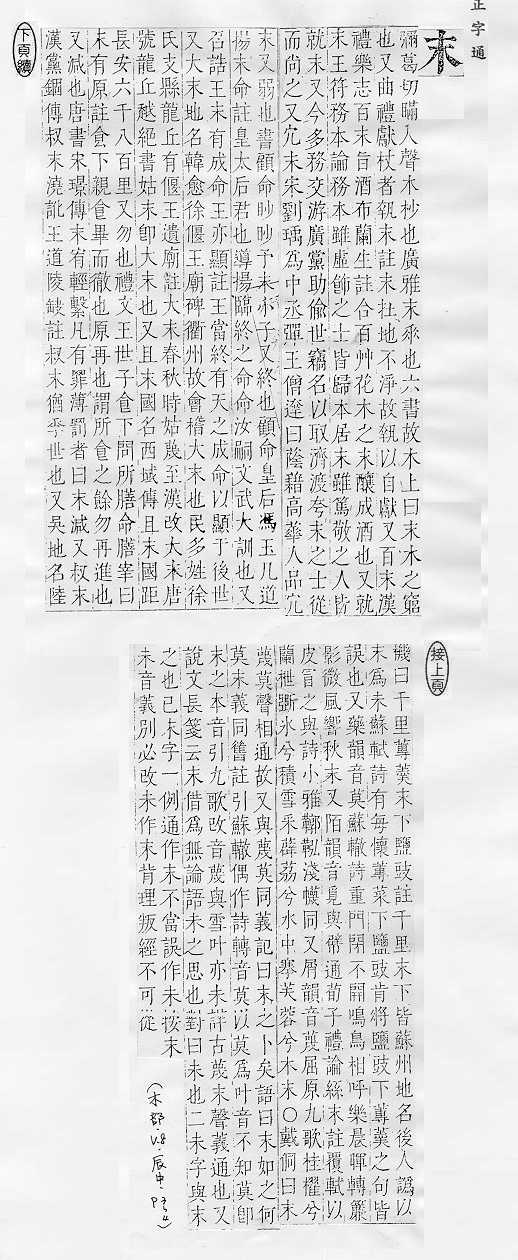 正字通
末
彌葛切瞞入聲木杪也廣雅末㮰也六書故木上曰末木之窮
也又曲禮獻杖者執末註末拄地不淨故執以自獻又百末漢
禮樂志百末旨酒布蘭生註合百艸花木之末釀成酒也又就
末王符務本論務本雖虛飾之士皆歸本居末雖篤敬之人皆
就末又今多務交游廣黨助偷世竊名以取濟渡夸末之士從
而尚之又冗末宋劉瑀爲中丞彈王僧達曰蔭藉高華人品冗
末又弱也書顧命眇眇予末小子又終也顧命皇后馮玉几道
揚末命註皇太后君也導揚臨終之命命汝嗣文武大訓也又
召誥王末有成命王亦顯註王當終有天之成命以顯于後世
又大末地名韓愈徐偃王廟碑衢州故會稽大末也民多姓徐
氏支縣龍丘有偃王遺廟註大末春秋時姑蔑至漢改大末唐
號龍丘越絕書姑末卽大末也又且末國名西域傳且末國距
長安六千八百里又勿也禮文王世子食下問所膳命膳宰曰
末有原註食下親食畢而徹也原再也謂所食之餘勿再進也
又減也唐書宋璟傳末宥輕繫凡有罪薄罰者曰末減又叔末
漢黨錮傳叔末澆訛王道陵缺註叔末猶季世也又吳地名陸
下頁續
接上頁
機曰千里蓴羹末下鹽豉註千里末下皆蘇州地名後人譌以
末爲未蘇軾詩有每懷蓴菜下鹽豉肯將鹽豉下蓴羹之句皆
誤也又藥韻音莫蘇轍詩重門閉不開鳴鳥相呼樂晨暉轉簾
影微風響秋末又陌韻音覓與幦通荀子禮論絲末註覆軾以
皮冒之與詩小雅鞹鞃淺幭同又屑韻音蔑屈原九歌桂櫂兮
蘭枻斲氷兮積雪采薜荔兮水中搴芙蓉兮木末○戴侗曰末
蔑莫聲相通故又與蔑莫同義記曰末之卜矣語曰末如之何
莫末義同舊註引蘇轍偶作詩轉音莫以莫爲叶音不知莫卽
末之本音引九歌改音蔑與雪叶亦未詳古蔑末聲義通也又
說文長箋云末借爲無論語末之思也對曰末也二末字與末
之也已末字一例通作末不當誤作未按末
未音義別必改未作末背理叛經不可從
(木部.辰中.